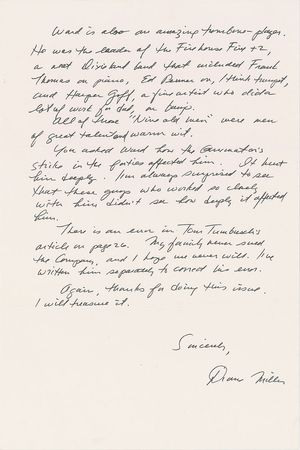 Ward is also an amazing trombone player.
He was the leader of the Firehouse Five + 2,
a neat Dixieland band that included Frank
Thomas on piano, Ed Penner on, I think trumpet,
and Harper Goff, a fine artist who did a
lot of work for Dad, on banjo.
All of these "Nine old men" were men
of great talent and warm wit.
You asked Ward how the animator's
strike in the forties affected him. It hurt
him deeply. I'm always surprised to see
that these guys who worked so closely
with him didn't see how deeply it affected
him.
There is an error in Tom Tumbusch's
article on page 26. My family never sued
the Company, and I hope we never will. I've
written him separately to correct his error.
Again, thanks for doing this issue.
I will treasure it.
Sincerely,
Diane Miller